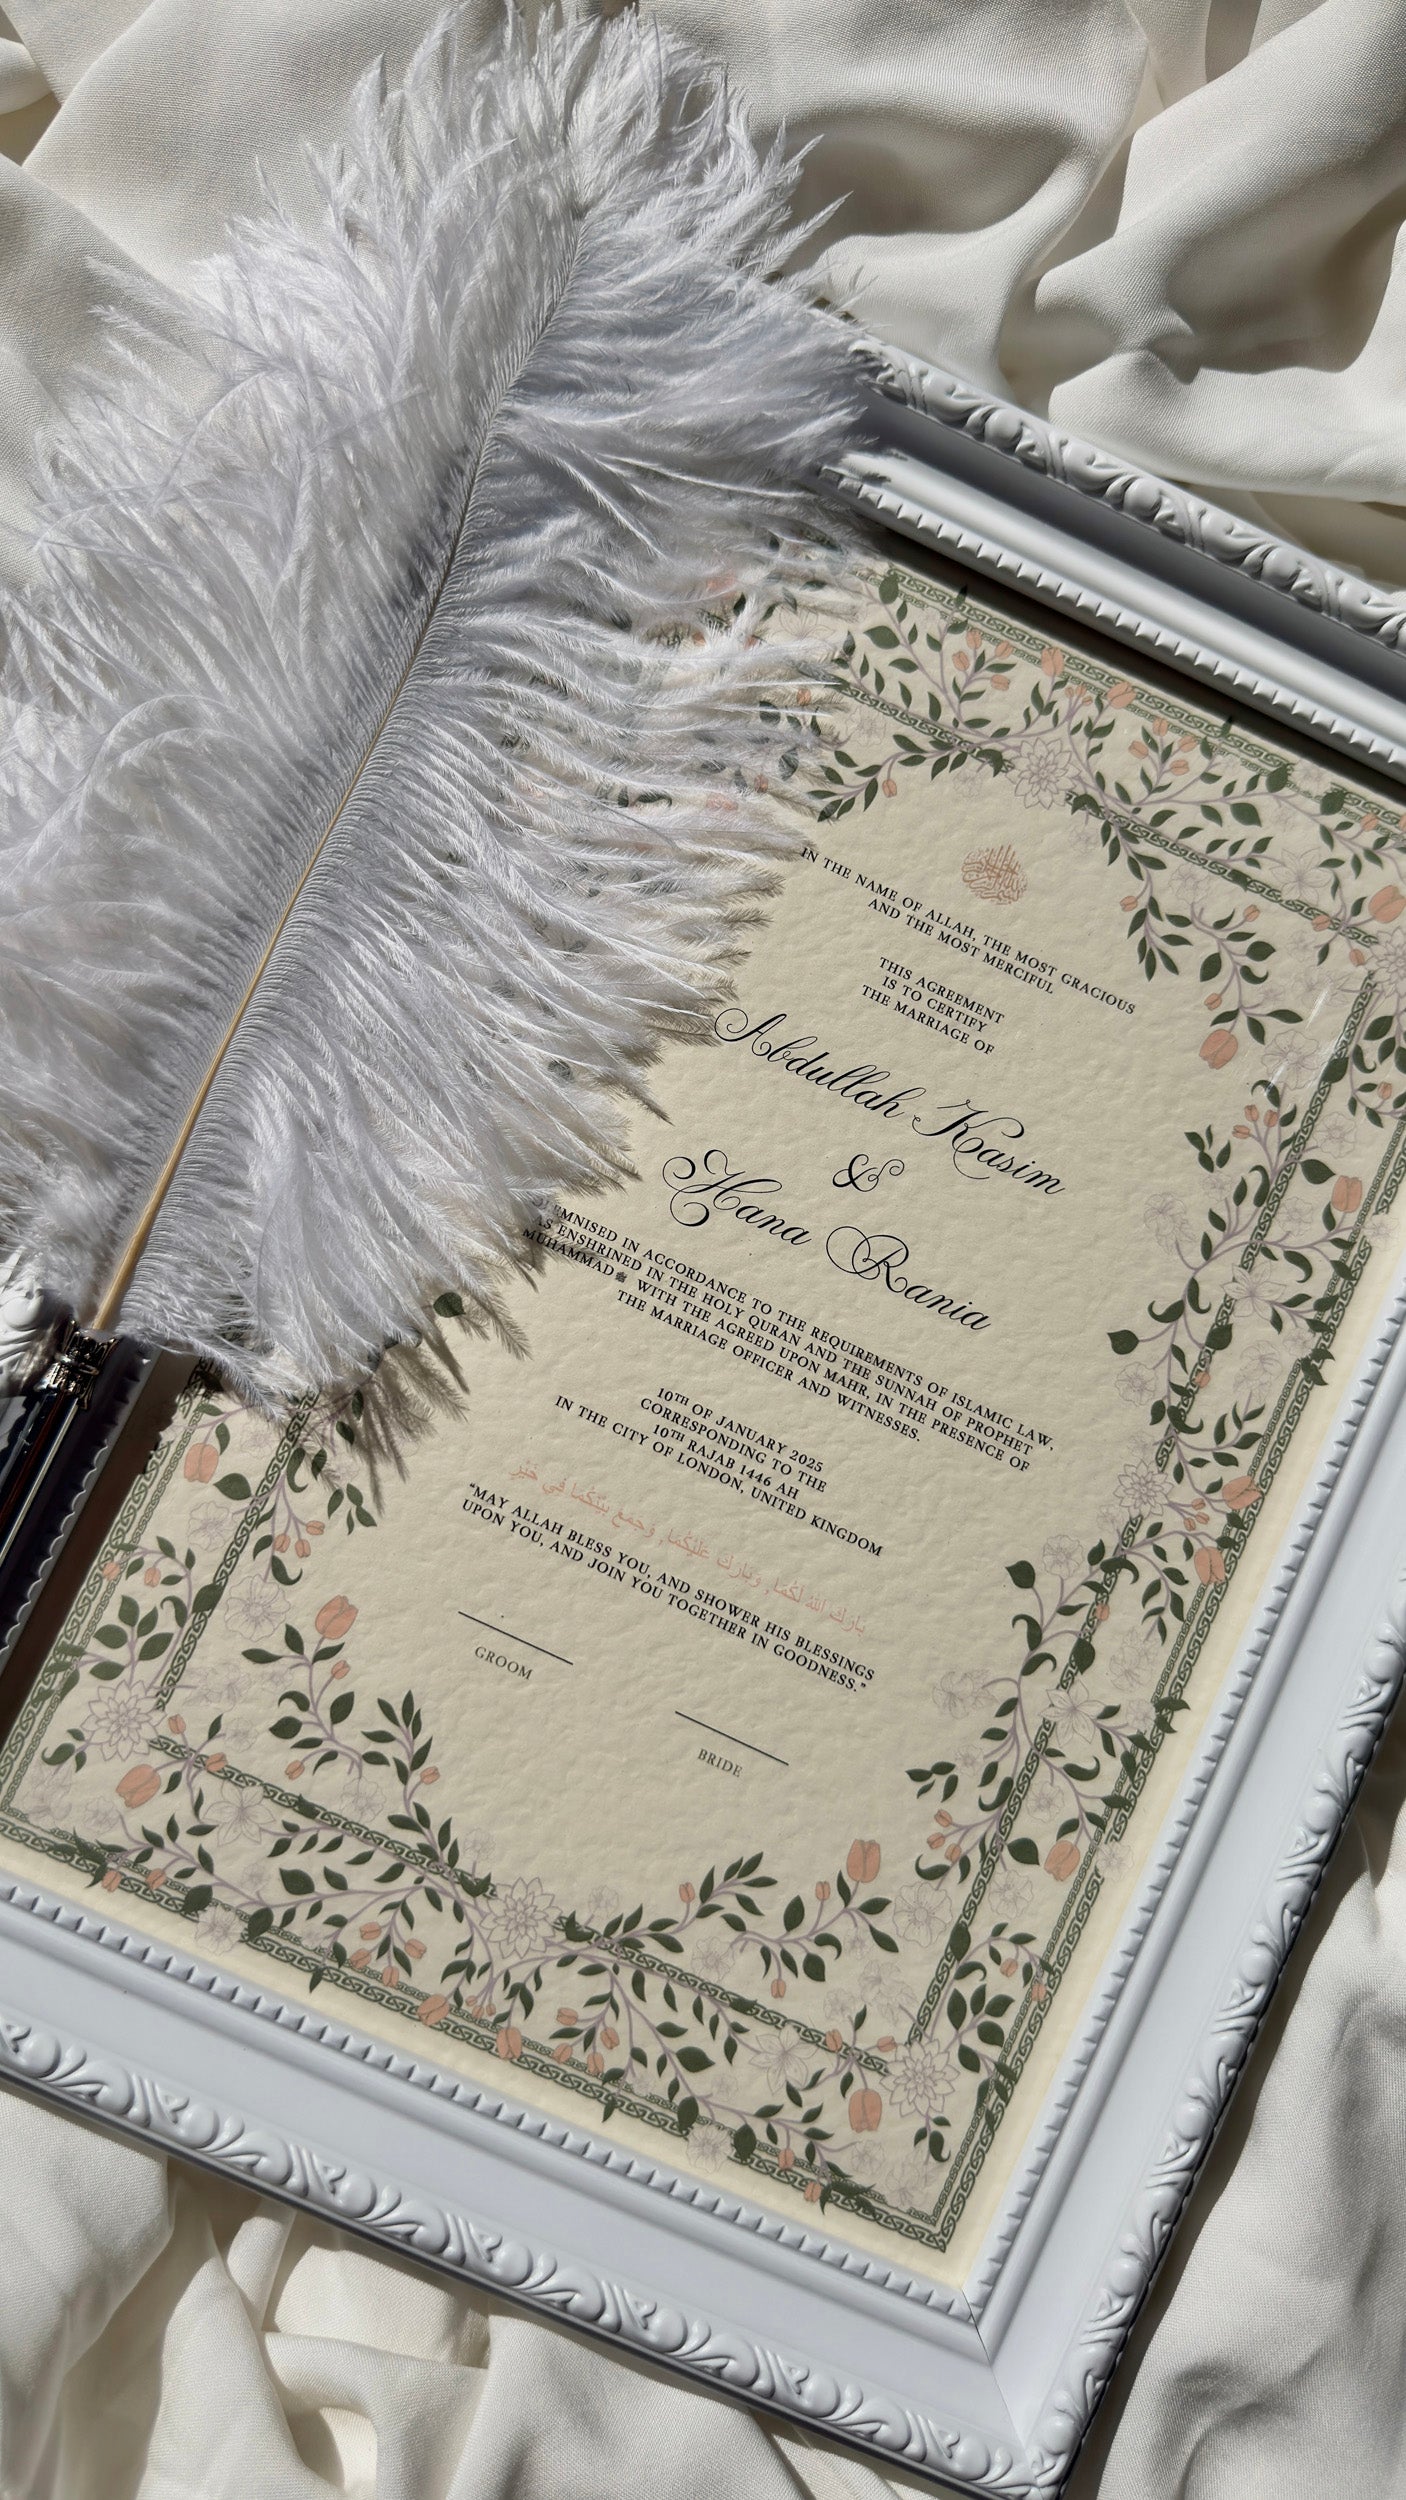 IN THE NAME OF ALLAH, THE MOST GRACIOUS
AND THE MOST MERCIFUL
THIS AGREEMENT
IS TO CERTIFY
THE MARRIAGE OF
Abdullah Kasim
&
Hana Rania
IN ACCORDANCE TO THE REQUIREMENTS OF ISLAMIC LAW,
AS ENSHRINED IN THE HOLY QURAN AND THE SUNNAH OF PROPHET
MUHAMMAD ﷺ WITH THE AGREED UPON MAHR, IN THE PRESENCE OF
THE MARRIAGE OFFICER AND WITNESSES.
10TH OF JANUARY 2025
CORRESPONDING TO THE
10TH RAJAB 1446 AH
IN THE CITY OF LONDON, UNITED KINGDOM
بَارَكَ اللهُ لَكُمَا, وَبَارَكَ عَلَيْكُمَا, وَجَمَعَ بَيْنَكُمَا فِي خَيْرٍ
“MAY ALLAH BLESS YOU, AND SHOWER HIS BLESSINGS
UPON YOU, AND JOIN YOU TOGETHER IN GOODNESS.”
GROOM
BRIDE